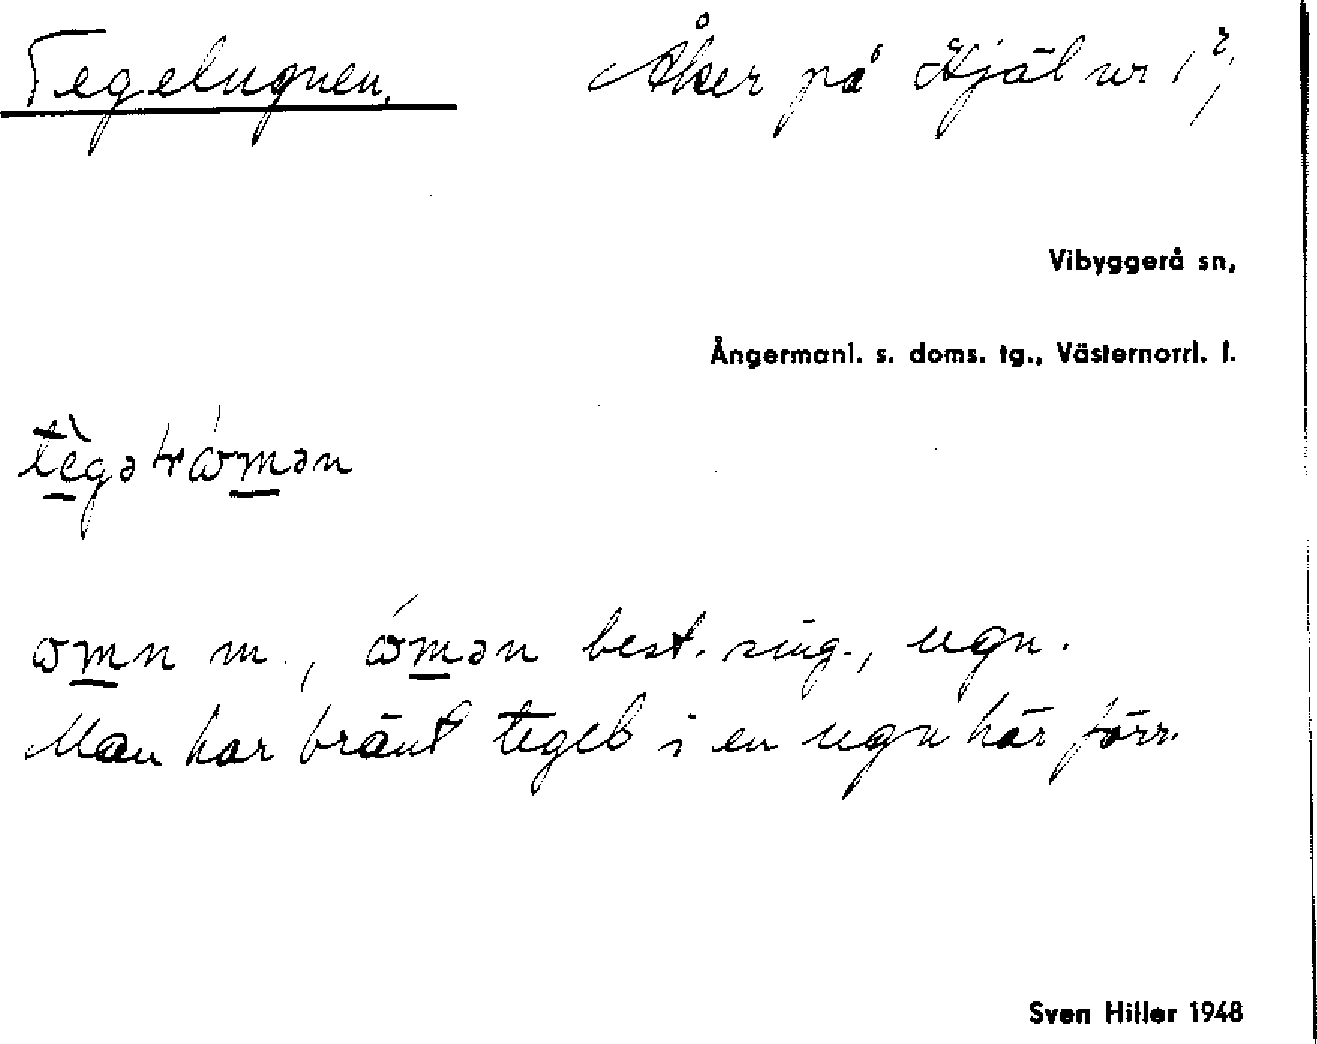 Tegelugnen. Åker på Hjälm 1²,
Vibyggerå sn,
Ångermanl. s. doms. tg., Västernorrl. l.
omn m., óman best. sing., ugn.
Man har bränt tegel i en ugn här förr.
Sven Hiller 1948